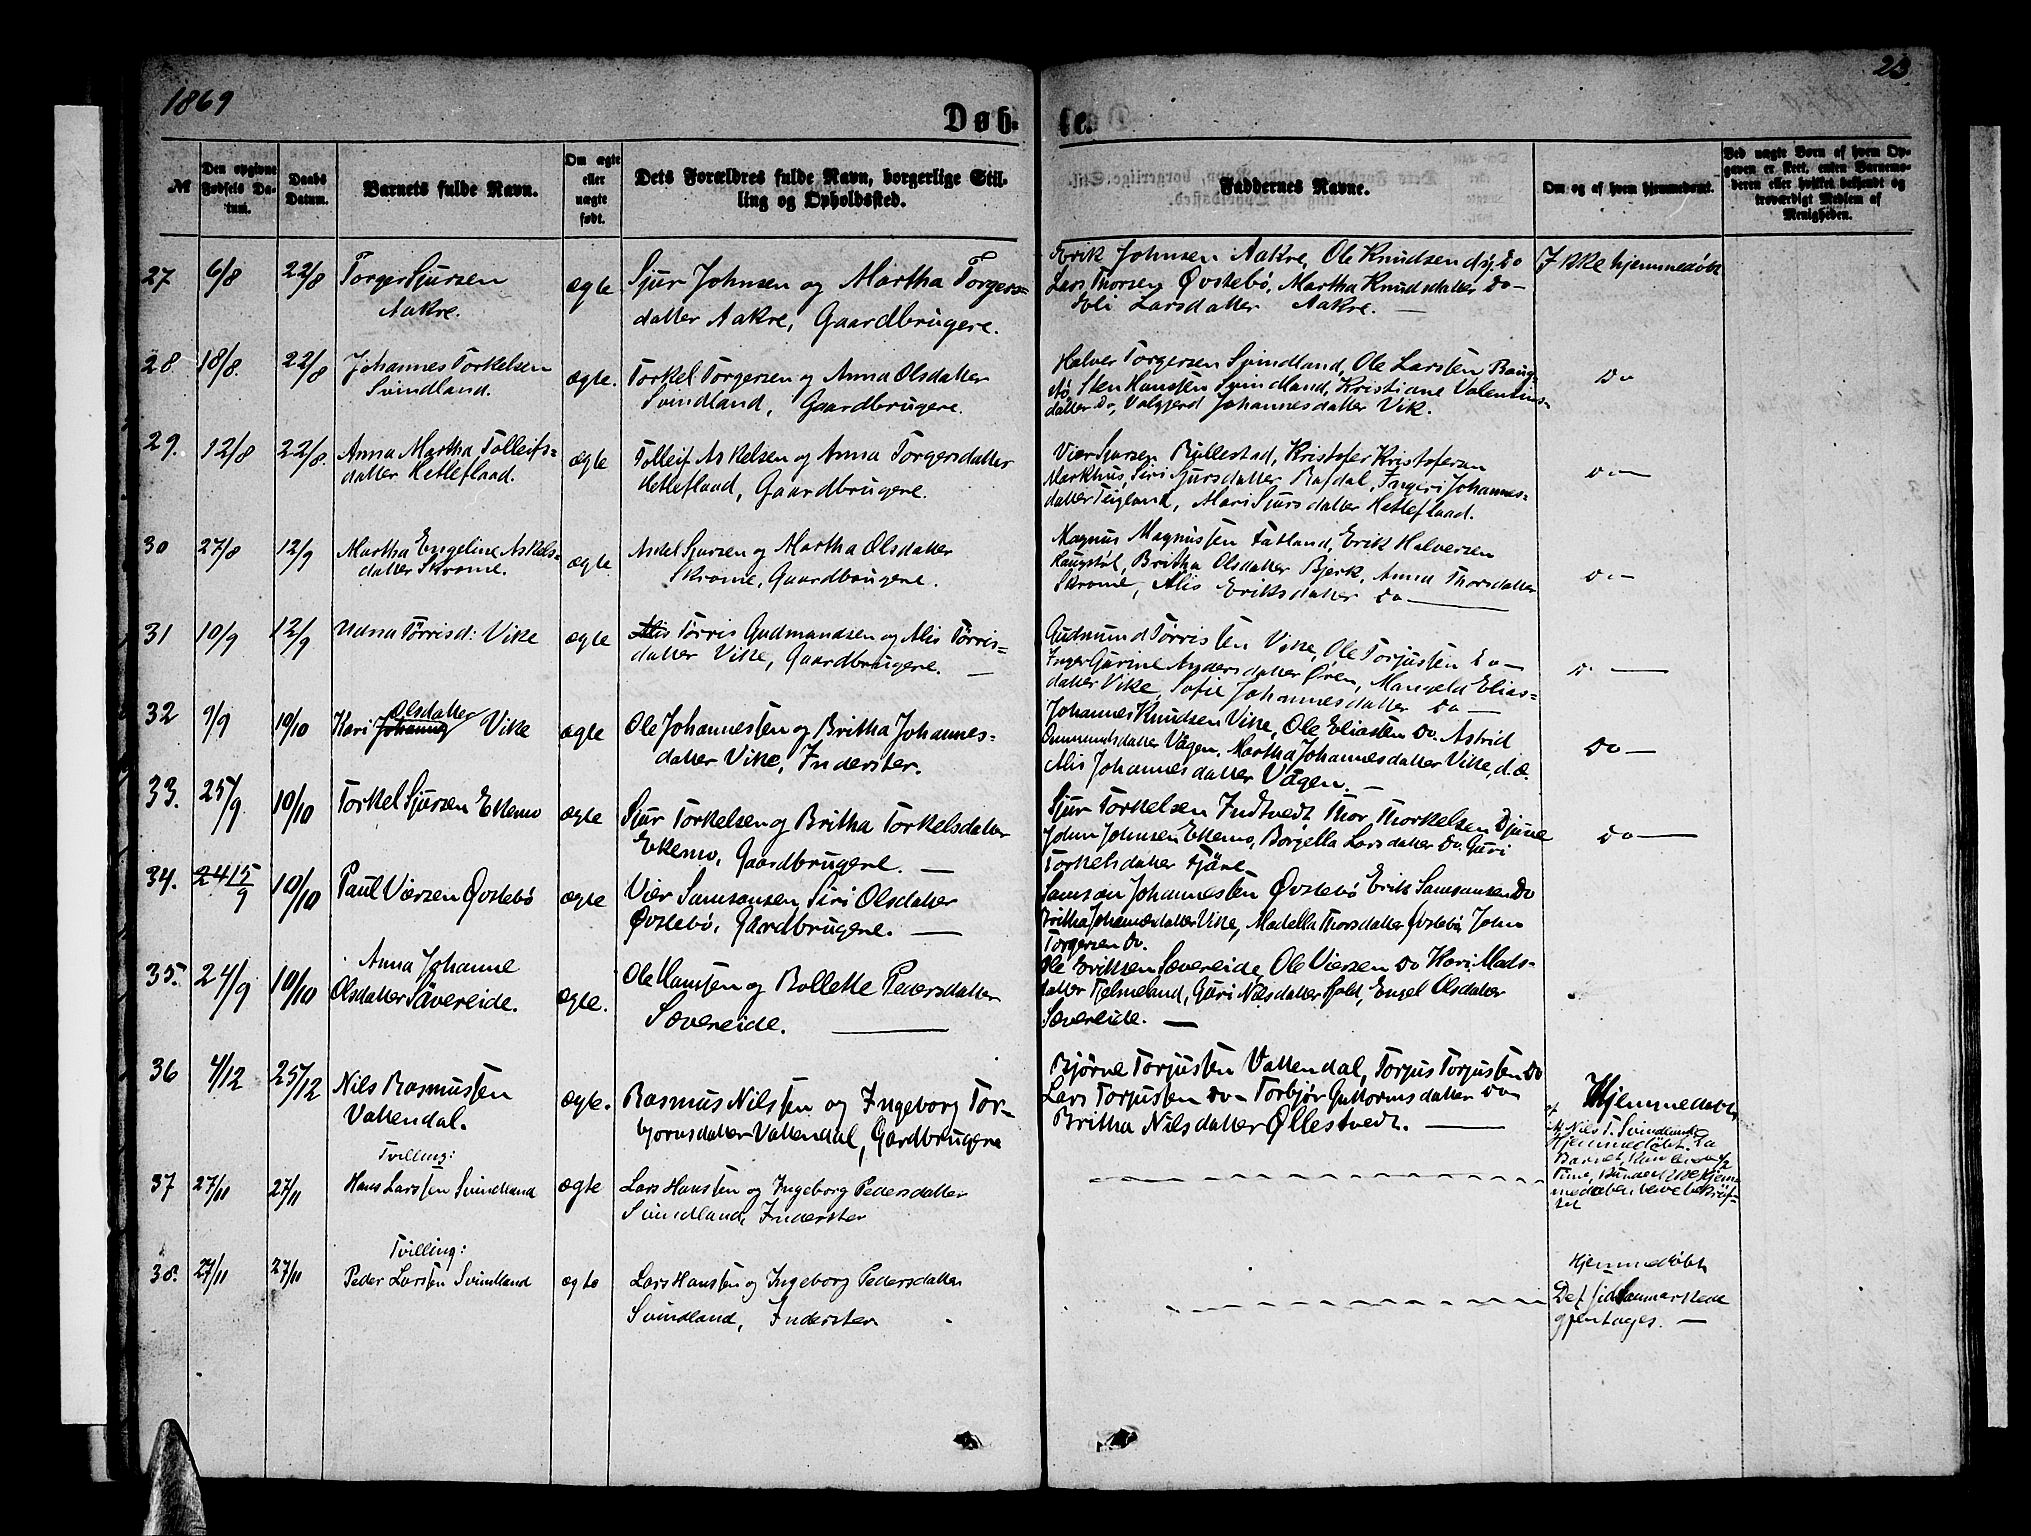 1869
23
Døb-
te.
№
Den opgivne Fødsels Da-tum.
Daabs Datum.
Barnets fulde Navn.
Om ægte eller uægte født.
Dets Forældres fulde Navn, borgerlige Stil-
ling og Opholdssted.
Faddernes Navne.
Om og af hvem hjemmedøbt.
Ved uægte Børn af hvem Op-
gaven er skeet, enten Barnemo-
deren eller hvilket bekjendt og
troværdigt Medlem af
Menigheden.
27 6/8 22/8 Torger Sjursen
Aakre.
ægte
Sjur Johnsen og Martha Torgers=
datter Aakre, Gaardbrugere.
Erik Johnsen Aakre, Ole Knudsen dy. Do
Lars Thorsen Øvstebö, Martha Knudsdatter Do-
Larsdatter Aakre. —
Ikke hjemmedøbt
28 18/8. 22/8 Johannes Torkelsen
Svindland.
ægte.
Torkel Torgersen og Anna Olsdatter
Svindland, Gaardbrugere.
Halver Torgersen Svindland, Ole Larssen Baug-
stö, Sten Hanssen Svindland, Kristiane Valentins-
datter Do, Valgjerd Johannesdatter Vik.
Do
29. 12/8 22/8. Anna Martha Tolleifs=
datter Hetleflaad.
ægte
Tolleif Askelsen og Anna Torgersdatter
Hetleflaad, Gaardbrugere.
Vier Sjursen Rullestad, Kristofer Kristofersen
Markhus, Siri Sjursdatter Rafdal, Ingeri Johannes=
datter Teigland, Mari Sjursdatter Hetleflaad.
Do—
30 27/8 12/9 Martha Engeline Askels=
datter Skrome.
ægte
Askel Sjursen og Martha Olsdatter
Skrome, Gaardbrugere.
Magnus Magnussen Fatland, Erik Halversen
Haugstöl, Britha Olsdatter Bjerk, Anna Thorsdatter
Skrome, Alis Eriksdatter Do —
Do—
31 10/9 12/9 Udna Tørrisd: Vike
ægte
Alis Tørris Gudmundsen og Alis Tørris-
datter Vike, Gaardbrugere. —
Gudmund Tørrissen Vike, Ole Torjussen Do—
Inger Gurine Andersdatter Ören, Mangela Elias-
datter Vike, Sofie Johannesdatter Do —
D. —
32 9/9 10/10 Kari Johanne Olsdatter Vike
ægte
Ole Johannessen og Britha Johannes-
datter Vike, Inderster.
Johannes Knudsen Vike, Ole Eliassen Do. Astrid
Ommundsdatter Vågen, Martha Johannesdatter Vike, d.æ.
Alis Johannesdatter Vågen. —
Do—
33. 25/9 10/10 Torkel Sjursen Ekemo
ægte
Sjur Torkelsen og Britha Torkelsdatter
Ekemo, Gaardbrugere. —
Sjur Torkelsen Indtvedt Thor Thorkelsen Djuve
John Johnsen Ekemo, Borgella Larsdatter Do. Guri
Torkelsdatter
Do —
34. 24 15/9 10/10 Paul Viersen Øvstebö
ægte
Vier Samsonsen, Siri Olsdatter
Øvstebö, Gaardbrugere. —
Samson Johannessen Øvstebö Erik Samsonsen Do
Britha Johannesdatter Vike, Madella Thorsdatter Øvstebö, John
Torgersen Do.
35. 24/9 10/10 Anna Johanne
Olsdatter Sävereide.
ægte.
Ole Hanssen og Bollette Pedersdatter
Sævereide. —
Ole Eriksen Sævereide, Ole Viersen Do Kari Mads-
datter Fjelmeland, Guri Nilsdatter Hold, Engel Olsdatter
Sævereide. —
36 4/12 25/12 Nils Rasmussen
Vattendal.
ægte.
Rasmus Nilssen og Ingeborg Tor-
bjornsdatter Vattendal, Gardbrugere
Bjørne Torjussen Vattendal, Torjus Torjussen Do
Lars Torjussen Do— Torbjør Guttormsdatter Do
Britha Nilsdatter Øllestvedt. —
Hjemmedøbt
37 27/11 27/11 Tvilling:
Hans Larssen Svindland
ægte
Lars Hanssen og Ingeborg Pedersdatter
Svindland, Inderster
af Nils T. Svindland
Hjemmedöbt. Da
Barnet kun levede 1/2
Time, kunde ikke Hjem-
medaaben beve bekræf-
tet
38. 27/11 27/11 Tvilling:
Peder Larssen Svindland
ægte
Lars Hanssen og Ingeborg Pedersdatter
Svindland, Inderster
Hjemmedöbt
Det anmærkede
gjentages. —